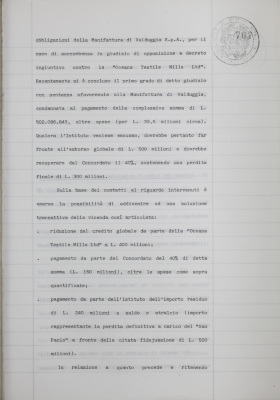 707
obbligazioni della Manifattura di Valduggia S.p.A., per il
caso di soccombenza in giudizio di opposizione a decreto
ingiuntivo contro la "Oceana Textile Mills Ltd".
Recentemente si è concluso il primo grado di detto giudizio
con sentenza sfavorevole alla Manifattura di Valduggia,
condannata al pagamento della complessiva somma di L.
502.286.843, oltre spese (per L. milioni circa).
Qualora l'Istituto venisse escusso, dovrebbe pertanto far
fronte all'esborso globale di L. 500 milioni e dovrebbe
recuperare dal Concordato il 40%, sostenendo una perdita
finale di L. 300 milioni.
Sulla base dei contatti al riguardo intervenuti è
emersa la possibilità di addivenire ad una soluzione
transattiva della vicenda così articolata:
. riduzione del credito globale da parte della "Oceana
Textile Mills Ltd" a L. 400 milioni;
. pagamento da parte del Concordato del 40% di detta
somma (L. 160 milioni), oltre le spese come sopra
quantificate;
. pagamento da parte dell'Istituto dell'importo residuo
di L. 240 milioni a saldo e stralcio (importo
rappresentante la perdita definitiva a carico del "San
Paolo" a fronte della citata fidejussione di L. 500
milioni).
In relazione a quanto precede e ritenendo